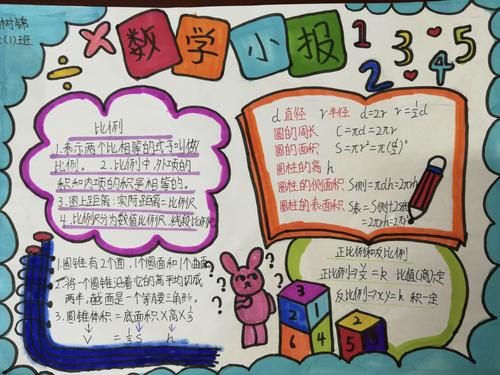 树锦
(1)班
数学小报
1 2 3 4 5
比例
1.表示两个比相等的式子叫做
比例。 2.比例中,外项的
积和内项的积是相等的。
3.图上距离:实际距离=比例尺
4.比例尺分为数值比例尺,线段比例尺
d直径 r半径 d=2r r=½d
圆的周长 C=πd=2πr
圆的面积 S=πr²=π(d/2)²
圆柱的高 h
圆柱的侧面积 S侧=πdh=2πrh
圆柱的表面积 S表=S侧+2S
=2πrh+2πr²
1.圆锥有2个面,1个圆面和1个曲面
2.将一个圆锥沿着它的高平均切成
两半,截面是一个等腰三角形。
3.圆锥体积=底面积×高×⅓
V = ⅓ S h
? ? ? ?
3
2 1
6 4 5 2
正比例和反比例
正比例→y/x=k 比值(商)一定
反比例→xy=k 积一定